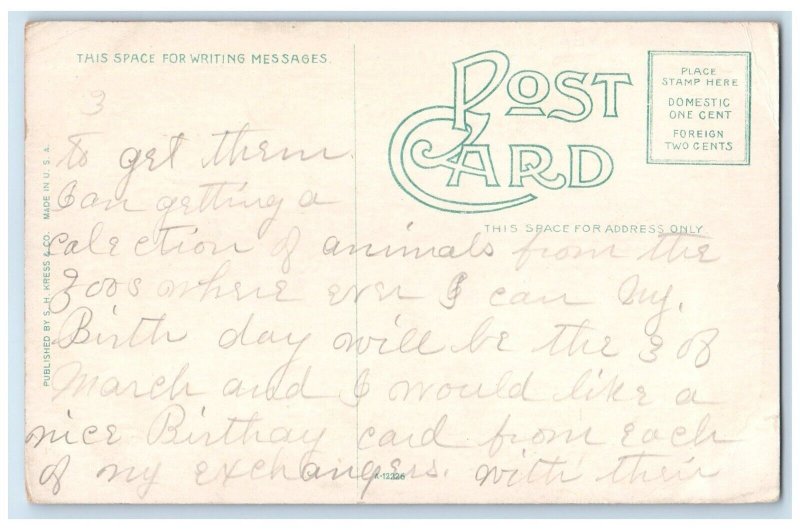 THIS SPACE FOR WRITING MESSAGES.
POST CARD
PLACE
STAMP HERE
DOMESTIC
ONE CENT
FOREIGN
TWO CENTS
THIS SPACE FOR ADDRESS ONLY
PUBLISHED BY S. H. KRESS & CO. MADE IN U. S. A.
3
to get them.
I an getting a
calection of animals from the
zoos where ever I can My.
Birth day will be the 3 of
March and I would like a
nice Birthay card from each
of my exchangers. with their
A-12226